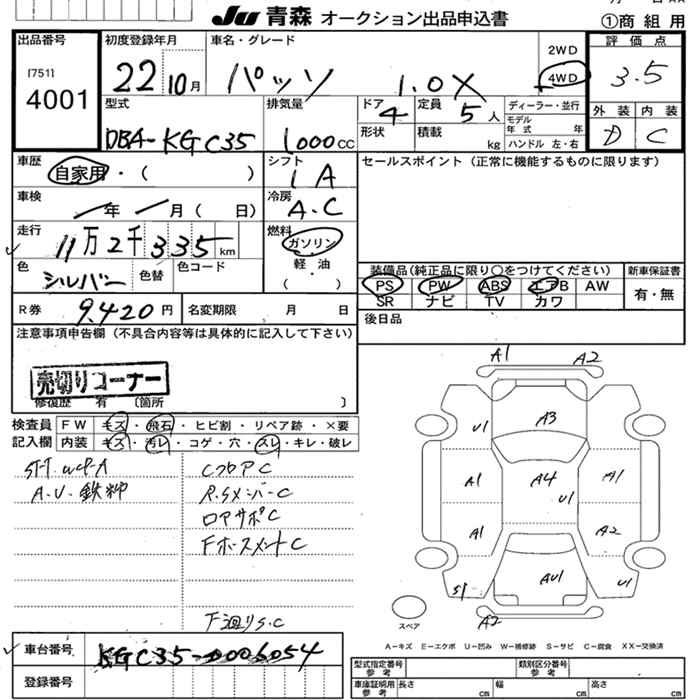 JU 青森 オークション出品申込書
①商組用
出品番号
[751]
4001
初度登録年月
22 10月
車名・グレード
パッソ 1.0X
2WD
4WD
評価点
3.5
外装 内装
D C
型式
DBA-KGC35
排気量
1000CC
ドア
4
定員
5人
形状
積載
kg
ディーラー・並行
モデル年式 年
ハンドル 左・右
車歴
自家用・( )
シフト
IA
セールスポイント (正常に機能するものに限ります)
車検
年 月( 日)
冷房
A.C
走行
11万2千335km
燃料
ガソリン
軽・油
( ・ )
色
シルバー
色替
色コード
装備品(純正品に限り○をつけてください)
新車保証書
PS PW ABS エアB AW
SR ナビ TV カワ
有・無
R券
9.420円
名変期限 月 日
後日品
注意事項申告欄 (不具合内容等は具体的に記入して下さい)
売切りコーナー
修復歴 有 (箇所 )
検査員
記入欄
FW キズ・飛石・ヒビ割・リペア跡・×要
内装 キズ・汚レ・コゲ・穴・スレ・キレ・破レ
Cフロア C
R.Sメンバー C
ロアサポ C
下廻り S.C
A1 A2
U1 A3
A1 A4 U1 A1
A1 A2
S1 AU1 U1
A2
スペア
A-キズ E-エクボ U-凹み W-補修跡 S-サビ C-腐食 XX-交換済
車台番号
KGC35-0006054
登録番号
型式指定番号 参考
類別区分番号 参考
車庫証明用 参考
長さ cm 幅 cm 高さ cm